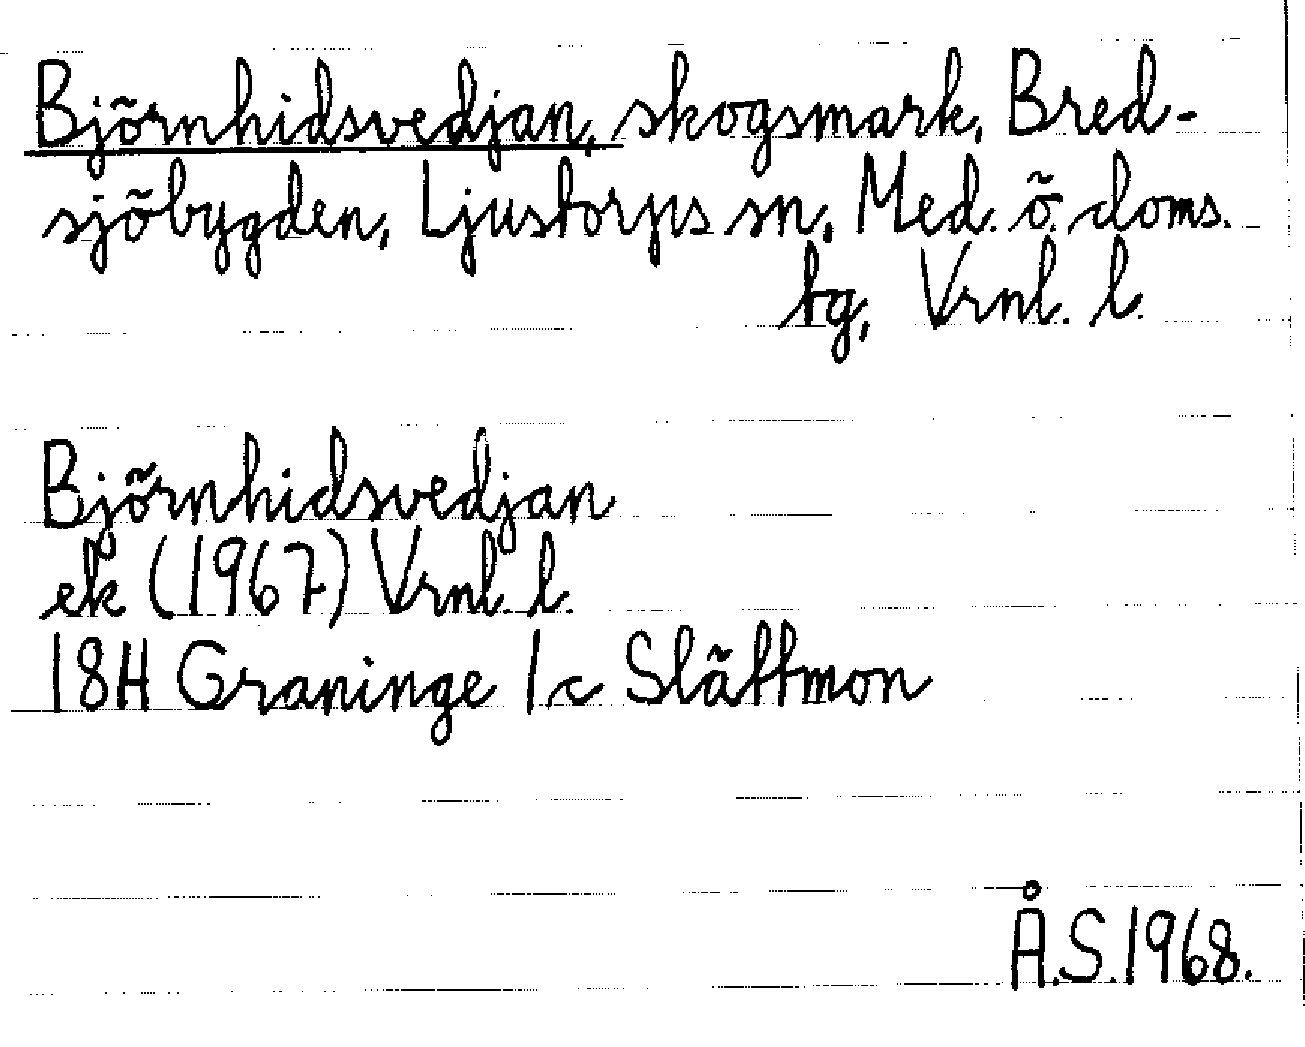 Björnhidsvedjan, skogsmark, Bred-
sjöbygden, Ljustorps sn, Med. ö. doms.
tg, Vrnl. l.
Björnhidsvedjan
ek (1967) Vrnl. l.
18H Graninge 1c Slättmon
Å.S. 1968.